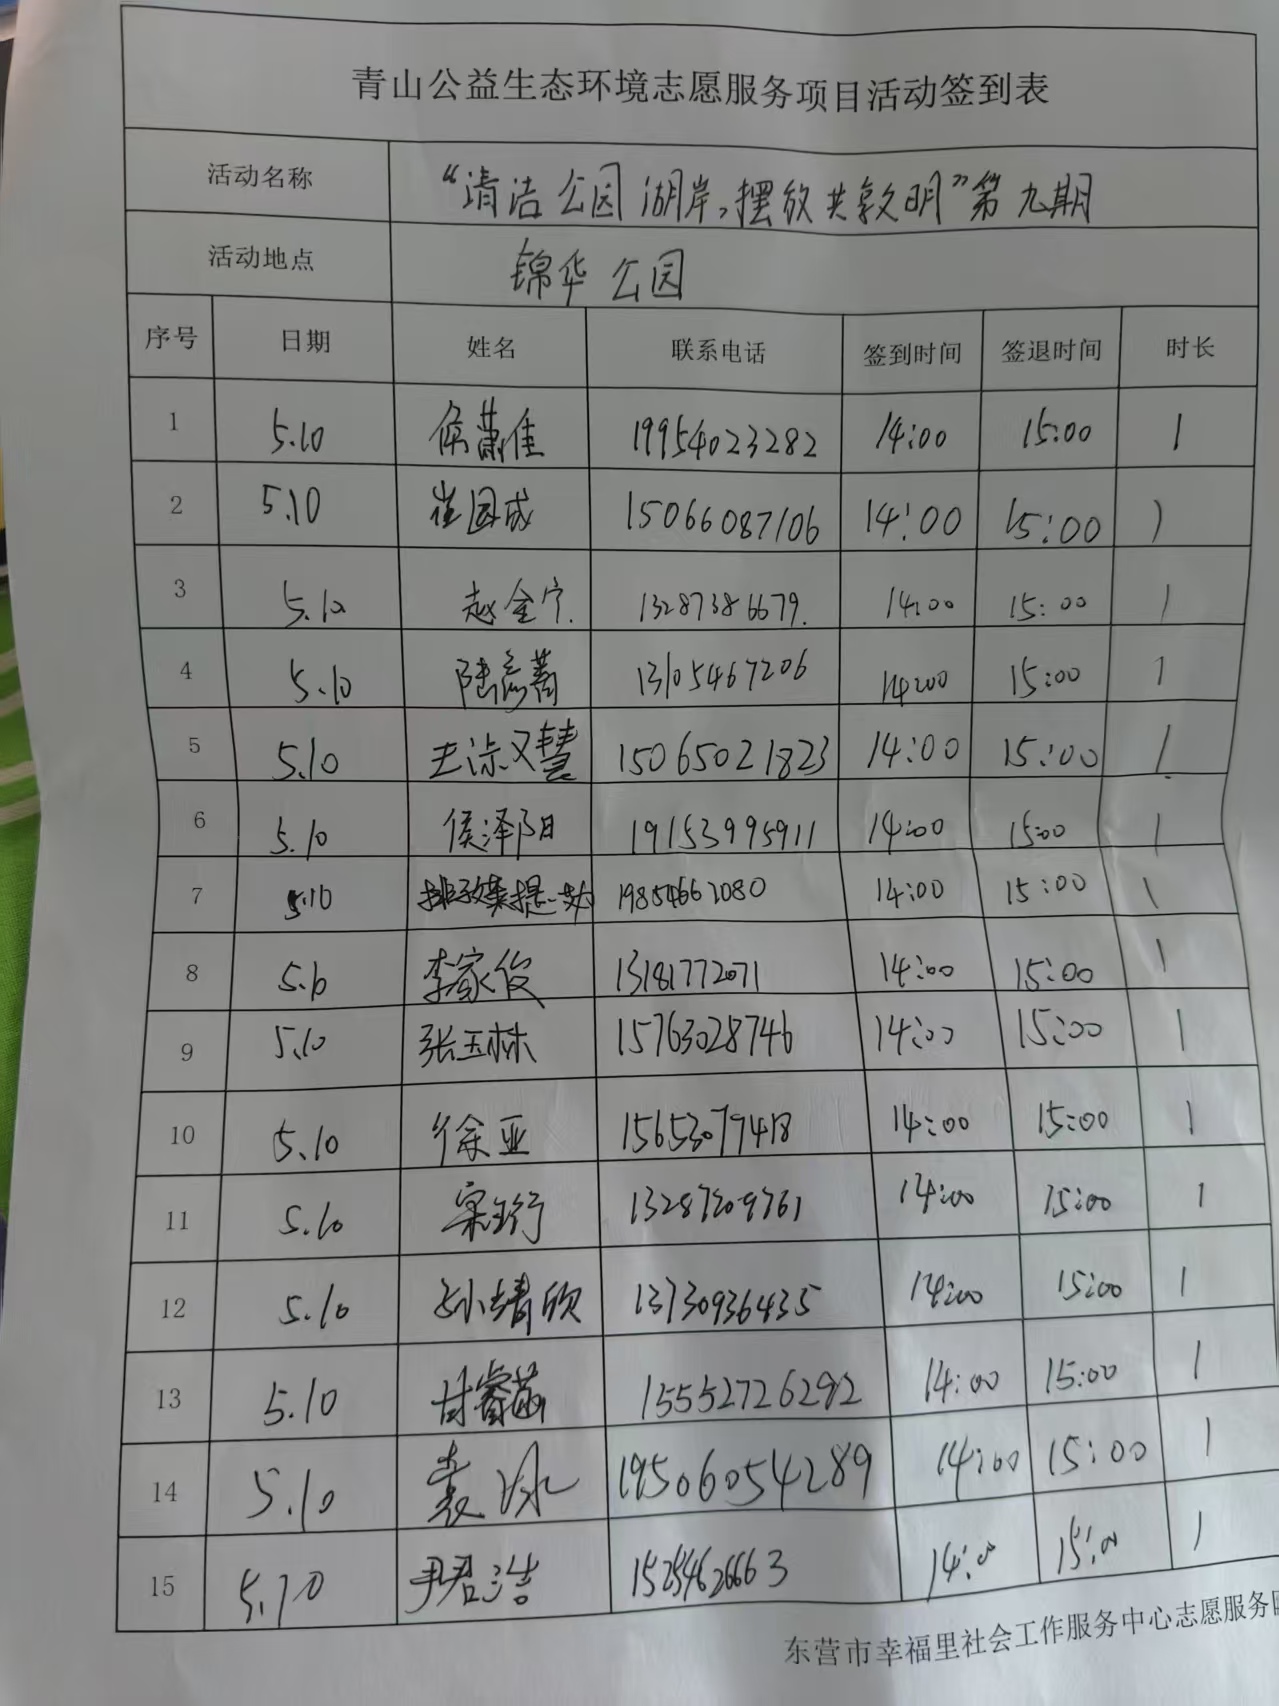 青山公益生态环境志愿服务项目活动签到表
活动名称 “清洁公园湖岸，摆放共享文明”第九期
活动地点 锦华公园
序号 日期 姓名 联系电话 签到时间 签退时间 时长
1 5.10 侯萧佳 19954023282 14:00 15:00 1
2 5.10 崔国成 15066087106 14:00 15:00 1
3 5.10 赵金宁 13287386679 14:00 15:00 1
4 5.10 陆彦菁 13105467206 14:00 15:00 1
5 5.10 15065021823 14:00 15:00 1
6 5.10 侯泽阳 19153995911 14:00 15:00 1
7 5.10 19854662080 14:00 15:00 1
8 5.10 李家俊 13181772071 14:00 15:00 1
9 5.10 张玉林 15763028746 14:00 15:00 1
10 5.10 徐亚 15653079418 14:00 15:00 1
11 5.10 宋钰行 13287209761 14:00 15:00 1
12 5.10 孙靖欣 13730936435 14:00 15:00 1
13 5.10 甘睿菡 15552726292 14:00 15:00 1
14 5.10 袁冰 19506054289 14:00 15:00 1
15 5.10 尹君浩 15254626663 14:00 15:00 1
东营市幸福里社会工作服务中心志愿服务